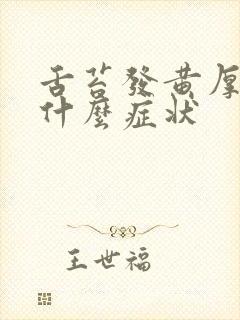 舌苔發黃厚
什麼症狀
王世福